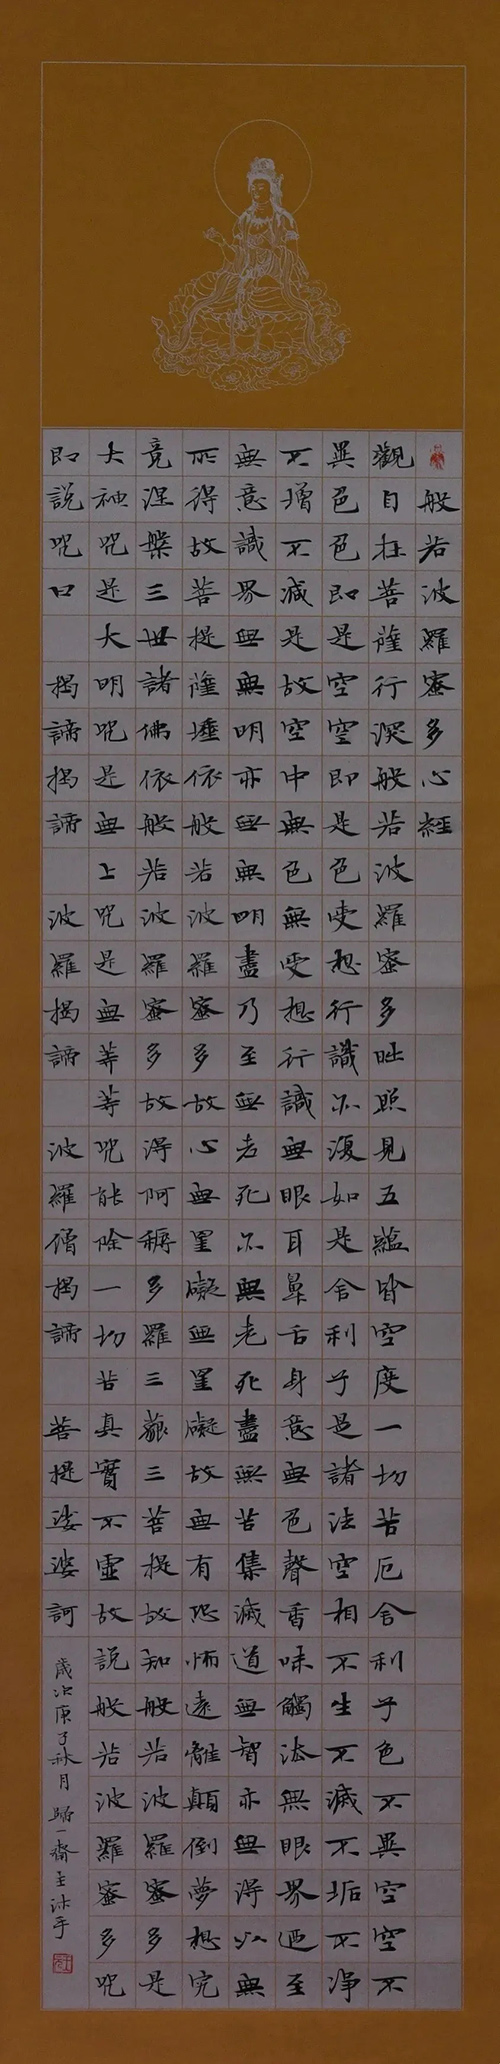 般若波羅蜜多心經
觀自在菩薩行深般若波羅蜜多時照見五蘊皆空度一切苦厄舍利子色不異空空不
異色色即是空空即是色受想行識亦復如是舍利子是諸法空相不生不滅不垢不淨
不增不減是故空中無色無受想行識無眼耳鼻舌身意無色聲香味觸法無眼界迺至
無意識界無無明亦無無明盡乃至無老死亦無老死盡無苦集滅道無智亦無得以無
所得故菩提薩埵依般若波羅蜜多故心無罣礙無罣礙故無有恐怖遠離顛倒夢想究
竟涅槃三世諸佛依般若波羅蜜多故得阿耨多羅三藐三菩提故知般若波羅蜜多是
大神咒是大明咒是無上咒是無等等咒能除一切苦真實不虛故說般若波羅蜜多咒
即說咒曰 揭諦揭諦 波羅揭諦 波羅僧揭諦 菩提娑婆訶
歲次庚子秋月 歸一齋主沐手